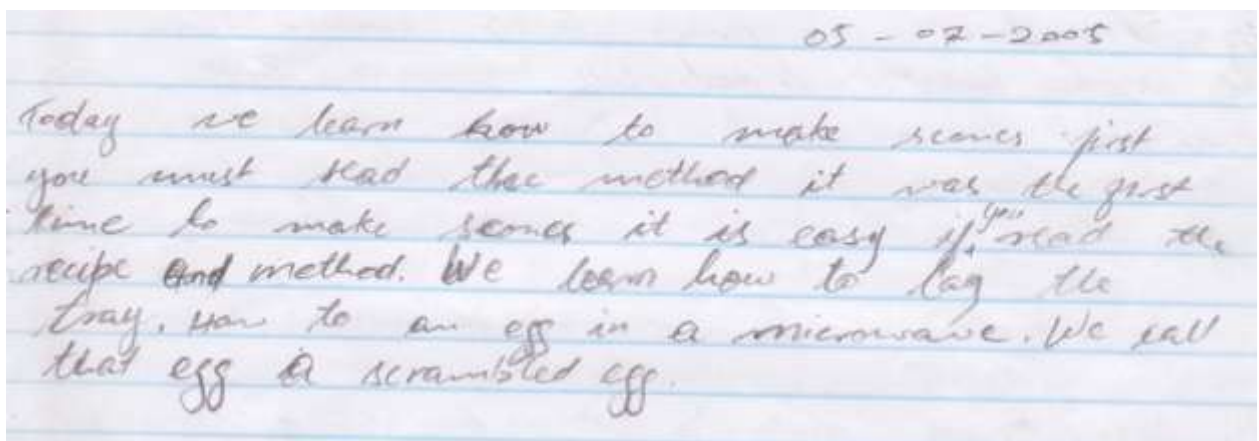 05-07-2005
Today we learn how to make scones first
you must read thee method it was the first
time to make scones it is easy if you read the
recipe and method. We learn how to lag the
tray. How to an egg in a microwave. We call
that egg a scrambled egg.